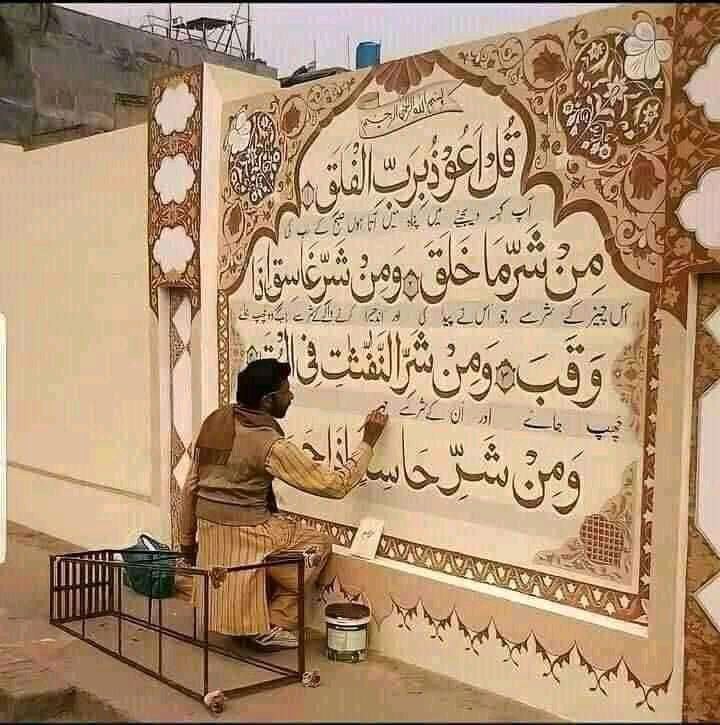 بسم الله الرحمن الرحيم
قُلْ اَعُوْذُ بِرَبِّ الْفَلَقِ
آپ کہہ دیجئے میں پناہ میں آتا ہوں صبح کے رب کی
مِنْ شَرِّ مَا خَلَقَ وَمِنْ شَرِّ غَاسِقٍ اِذَا
اس چیز کے شر سے جو اس نے پیدا کی اور اندھیرا کرنے والے کے شر سے
وَقَبَ وَمِنْ شَرِّ النَّفّٰثٰتِ فِی
چھپ جائے اور ان کے شر سے
وَمِنْ شَرِّ حَاسِدٍ اِذَا